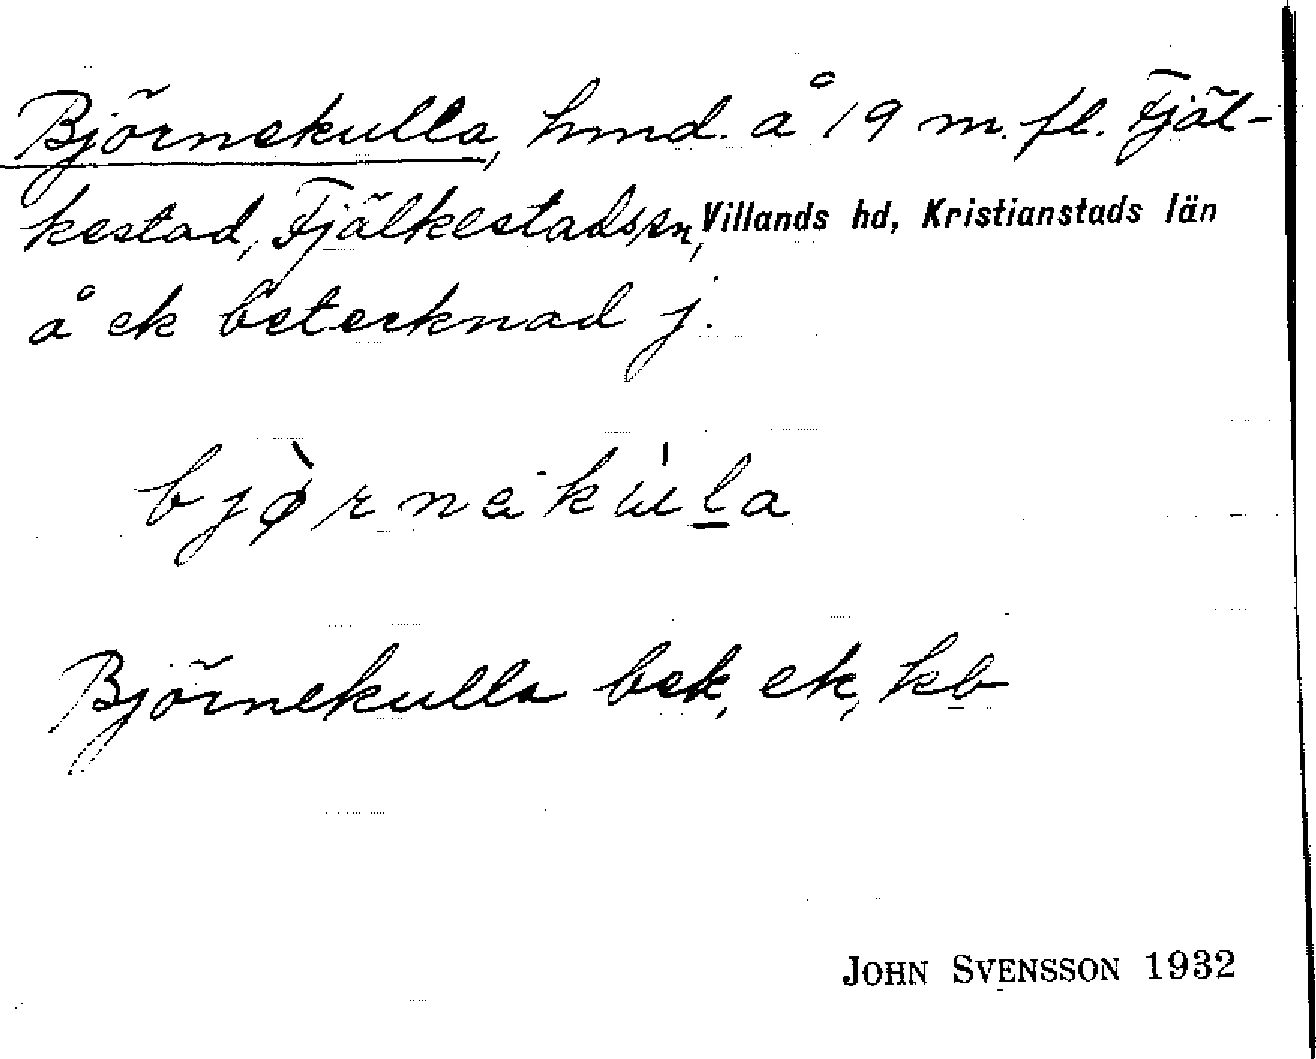 Björnekulla, hmd. å 19 m. fl. Fjäl-
kestad, Fjälkestads sn, Villands hd, Kristianstads län
å ek betecknad j.
bjø̀rnekúla
Björnekulla bek, ek, kb
JOHN SVENSSON 1932